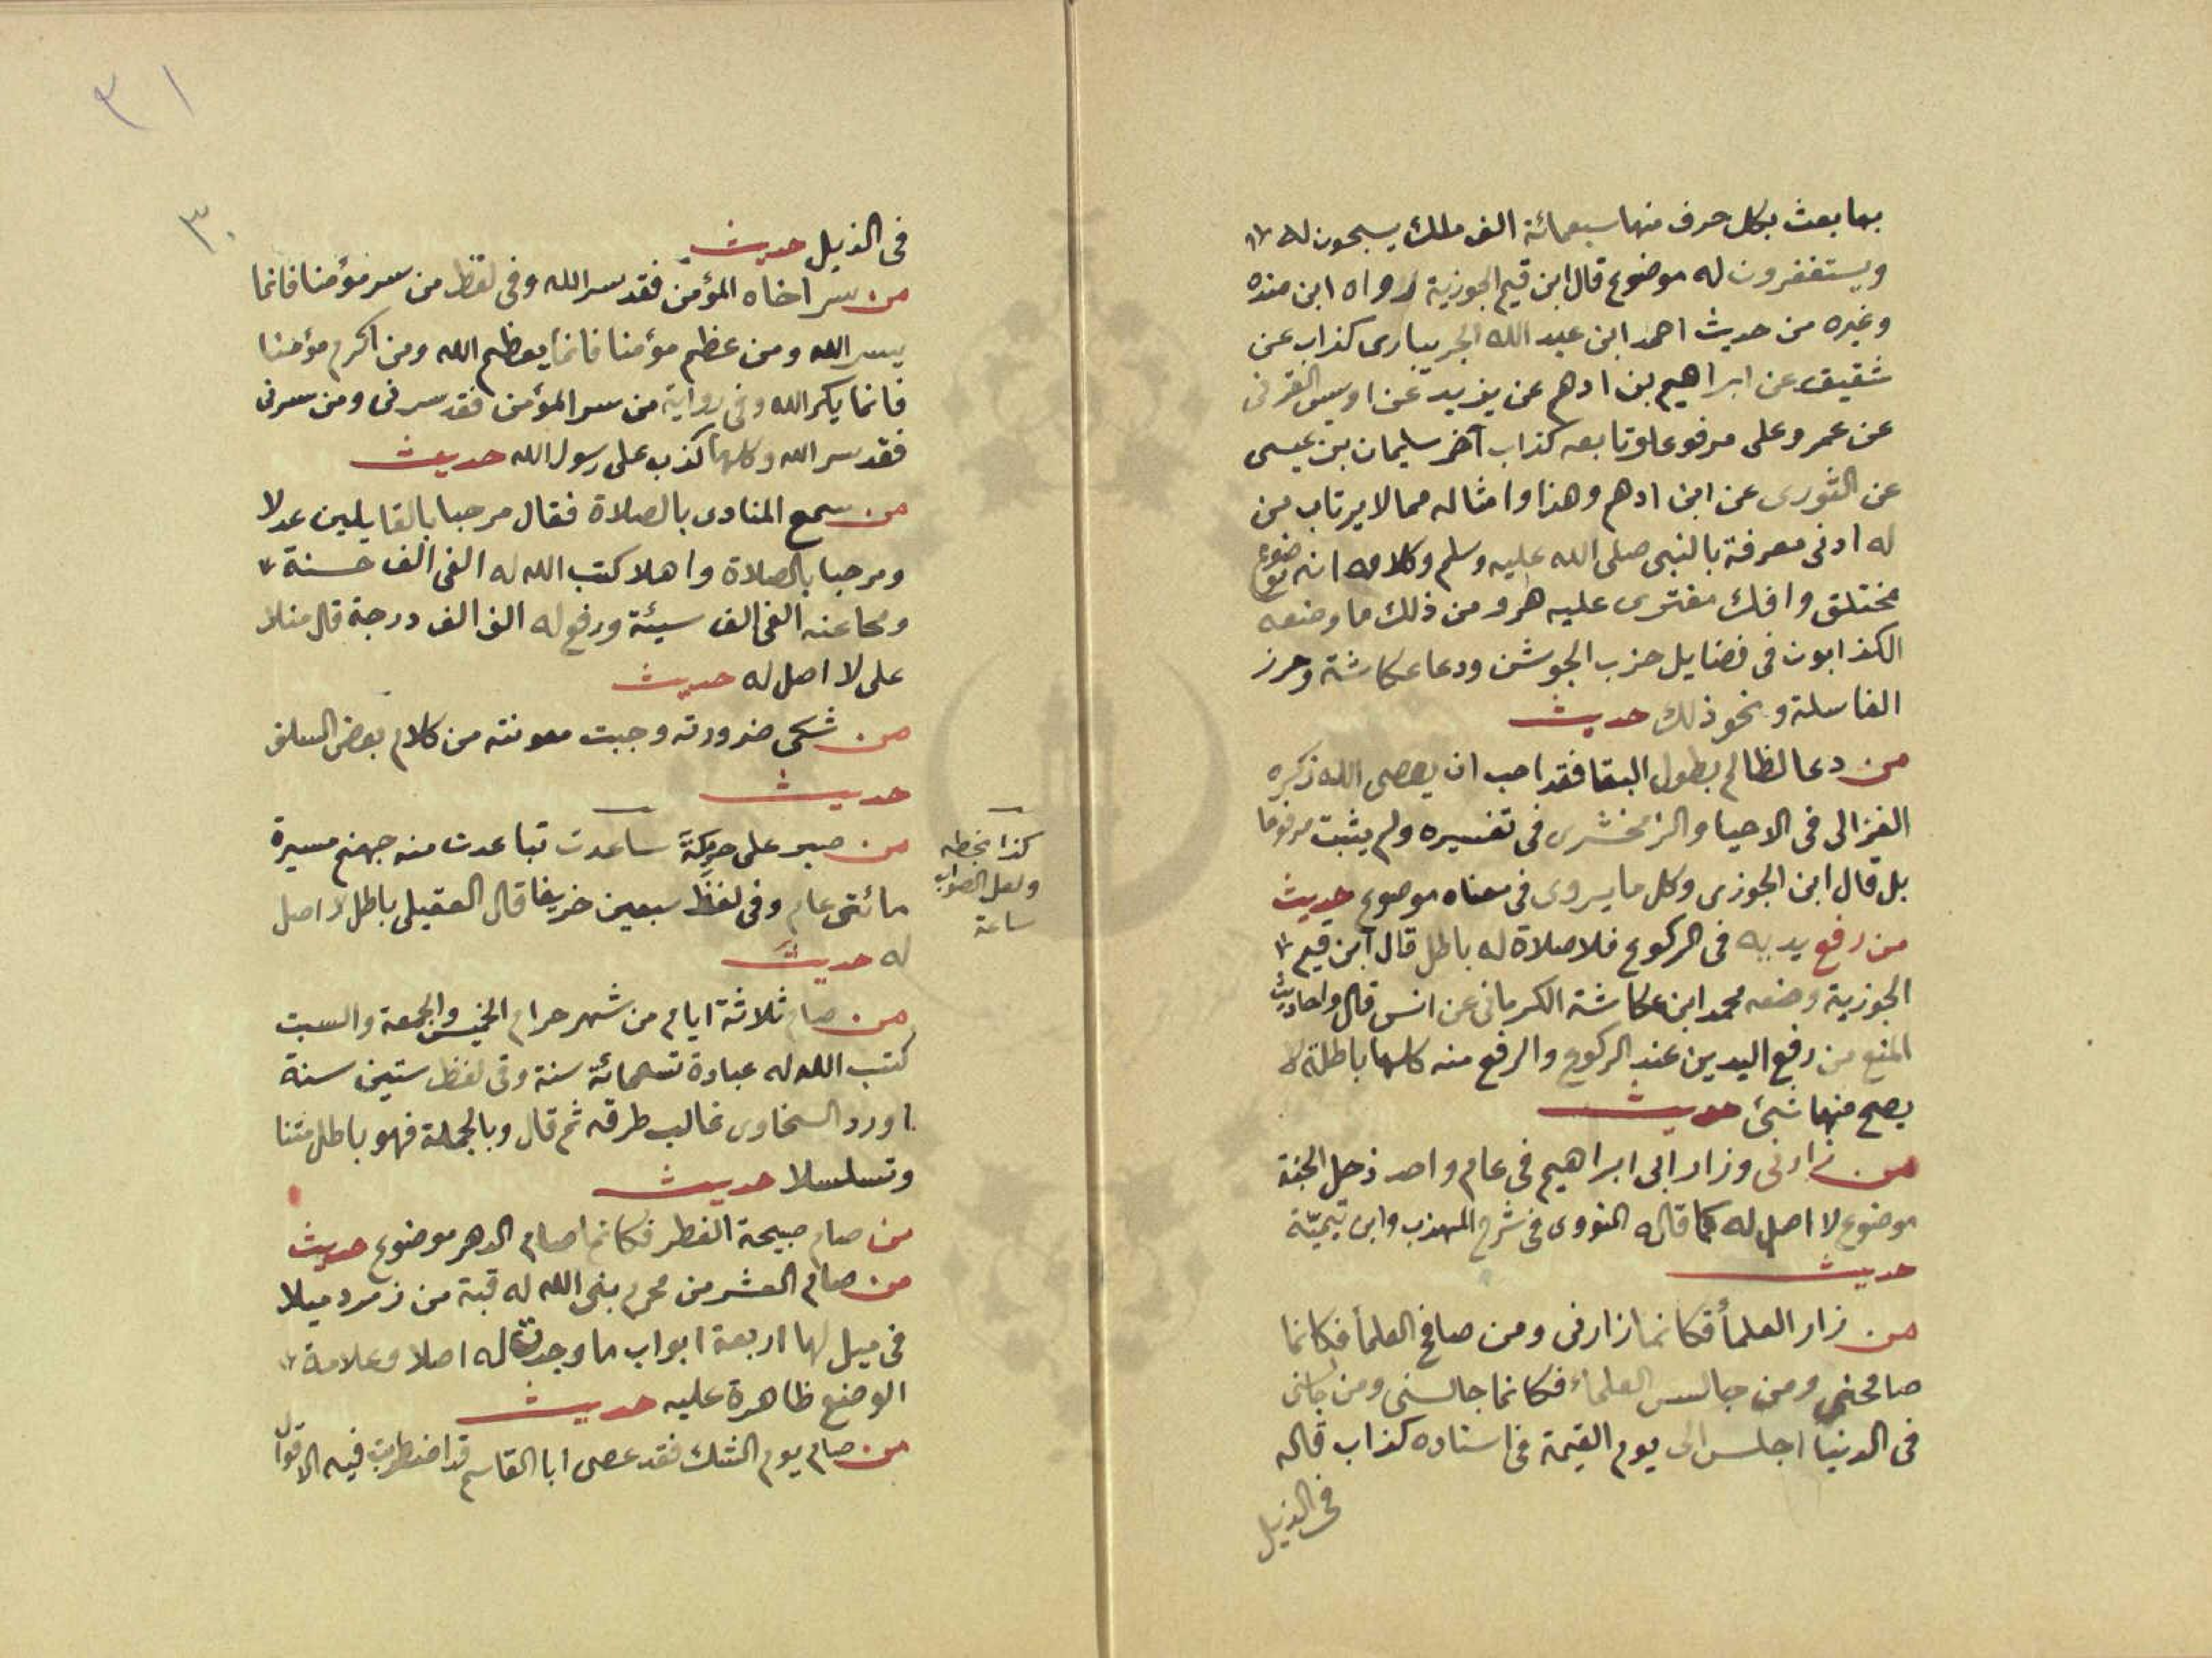 بها بعث بكل حرف منها سبعمائة الف ملك يسبحون له
ويستغفرون له موضوع قال ابن قيم الجوزية رواه ابن منده
وغيره من حديث احمد ابن عبد الله الجريبارى كذاب عن
شقيق عن ابراهيم بن ادهم عن يزيد عن اويس القرنى
عن عمر وعلى مرفوعا وتابعه كذاب آخر سليمان بن عيسى
عن الثورى عن ابن ادهم وهذا وامثاله مما لا يرتاب من
له ادنى معرفة بالنبى صلى الله عليه وسلم وكلامه انه موضوع
مختلق وافك مفترى عليه هر ومن ذلك ما وضعه
الكذابون فى فضايل حزب الجوشن ودعا عكاشة وحرز
الفاسلة ونحو ذلك حديث
من دعا لظالم بطول البقا فقد احب ان يعصى الله ذكره
الغزالى فى الاحيا والزمخشرى فى تفسيره ولم يثبت مرفوعا
بل قال ابن الجوزى وكل ما يروى فى معناه موضوع حديث
من رفع يديه فى الركوع فلا صلاة له باطل قال ابن قيم
الجوزية وضعه محمد ابن عكاشة الكرمانى عن انس قال واحاديث
المنع من رفع اليدين عند الركوع والرفع منه كلها باطلة لا
يصح منها شئ حديث
من زارنى وزار ابى ابراهيم فى عام واحد دخل الجنة
موضوع لا اصل له كما قاله النووى فى شرح المهذب وابن تيميّة
حديث
من زار العلمأ فكانما زارنى ومن صافح العلمأ فكانما
صافحنى ومن جالس العلماء فكانما جالسنى ومن جالسنى
فى الدنيا اجلس الى يوم القيمة فى اسناده كذاب قاله
فى الذيل
٣١
٣٠
فى الذيل حديث
من سر اخاه المؤمن فقد سر الله وفى لفظ من سر مؤمنا فانما
يسر الله ومن عظم مؤمنا فانما يعظم الله ومن اكرم مؤمنا
فانما يكر الله وفى رواية من سر المؤمن فقد سرنى ومن سرنى
فقد سر الله وكلها كذب على رسول الله حديث
من سمع المنادى بالصلاة فقال مرحبا بالقايلين عدلا
ومرحبا بالصلاة واهلا كتب الله له الفى الف حسنة
ومحا عنه الفى الف سيئة ورفع له الف الف درجة قال منلا
على لا اصل له حديث
من شكى ضرورته وجبت معونته من كلام بعض السلف
حديث
من صبر على حر مكة ساعدت تباعدت منه جهنم مسيرة
مائتى عام وفى لفظ سبعين خريفا قال العقيلى باطل لا اصل
له حديث
من صام ثلاثة ايام من شهر حرام الخميس والجمعة والسبت
كتب الله له عبادة تسعمائة سنة وفى لفظ ستين سنة
اورد السخاوى غالب طرقه ثم قال وبالجملة فهو باطل متنا
وتسلسلا حديث
من صام صبيحة الفطر فكانما صام الدهر موضوع حديث
من صام العشر من محرم بنى الله له قبة من زمرد ميلا
فى ميل لها اربعة ابواب ما وجدت له اصلا وعلامة
الوضع ظاهرة عليه حديث
من صام يوم الشك فقد عصى ابا القاسم قد اضطربت فيه الاقوال
كذا بخطه
ولعل الصواب
ساعة